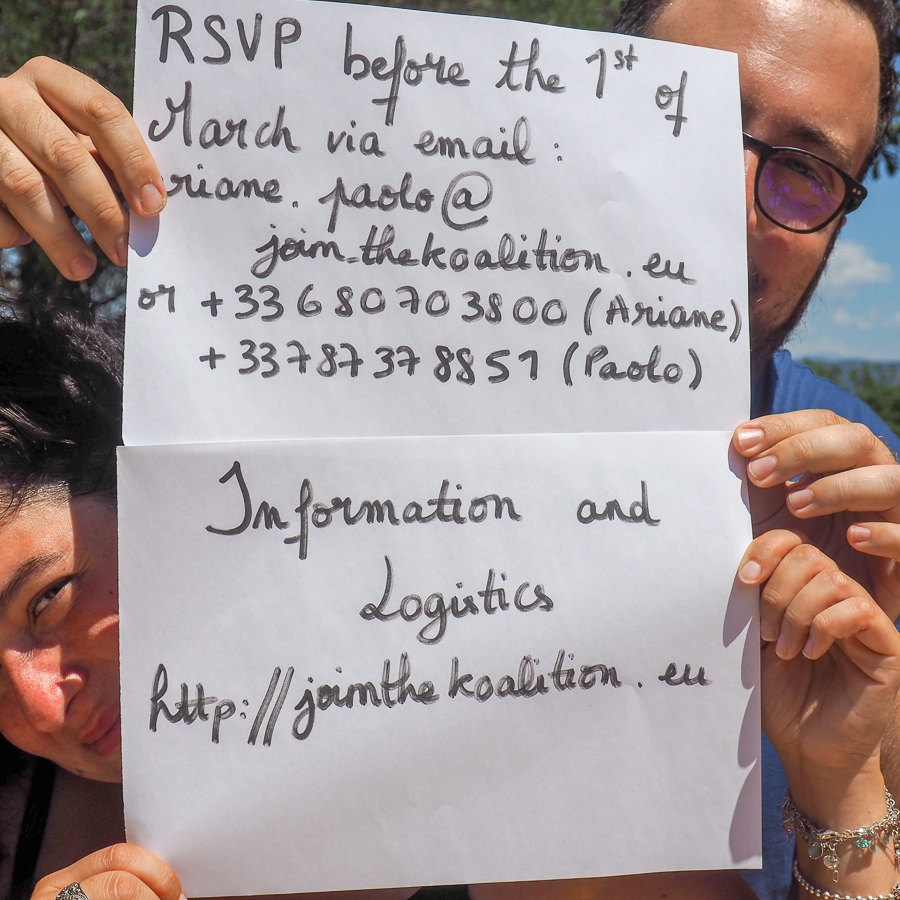 RSVP before the 1st of
March via email:
riane.paolo@
join_thekoalition.eu
or +33 6 80 70 38 00 (Ariane)
+33 7 87 37 88 51 (Paolo)
Information and
Logistics
http://jointhekoalition.eu